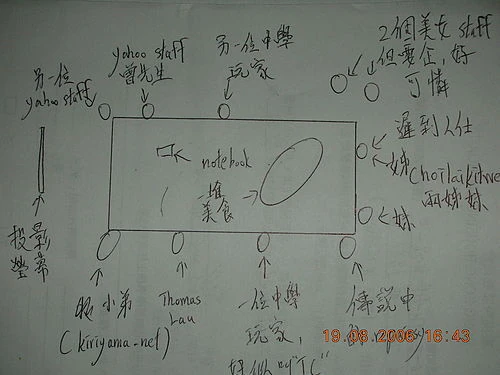 2個美女 staff
但要企, 好
可憐
另一位中學
玩家
yahoo staff
曾先生
另一位
yahoo staff
遲到人仕
姊
Choilaikihwe
兩姊妹
妹
notebook
一堆
美食
投影
螢幕
昭小弟
(kiriyama-net)
Thomas
Lau
一位中學
玩家,
好似叫"TC"
傳說中
19 08 2006 16:43